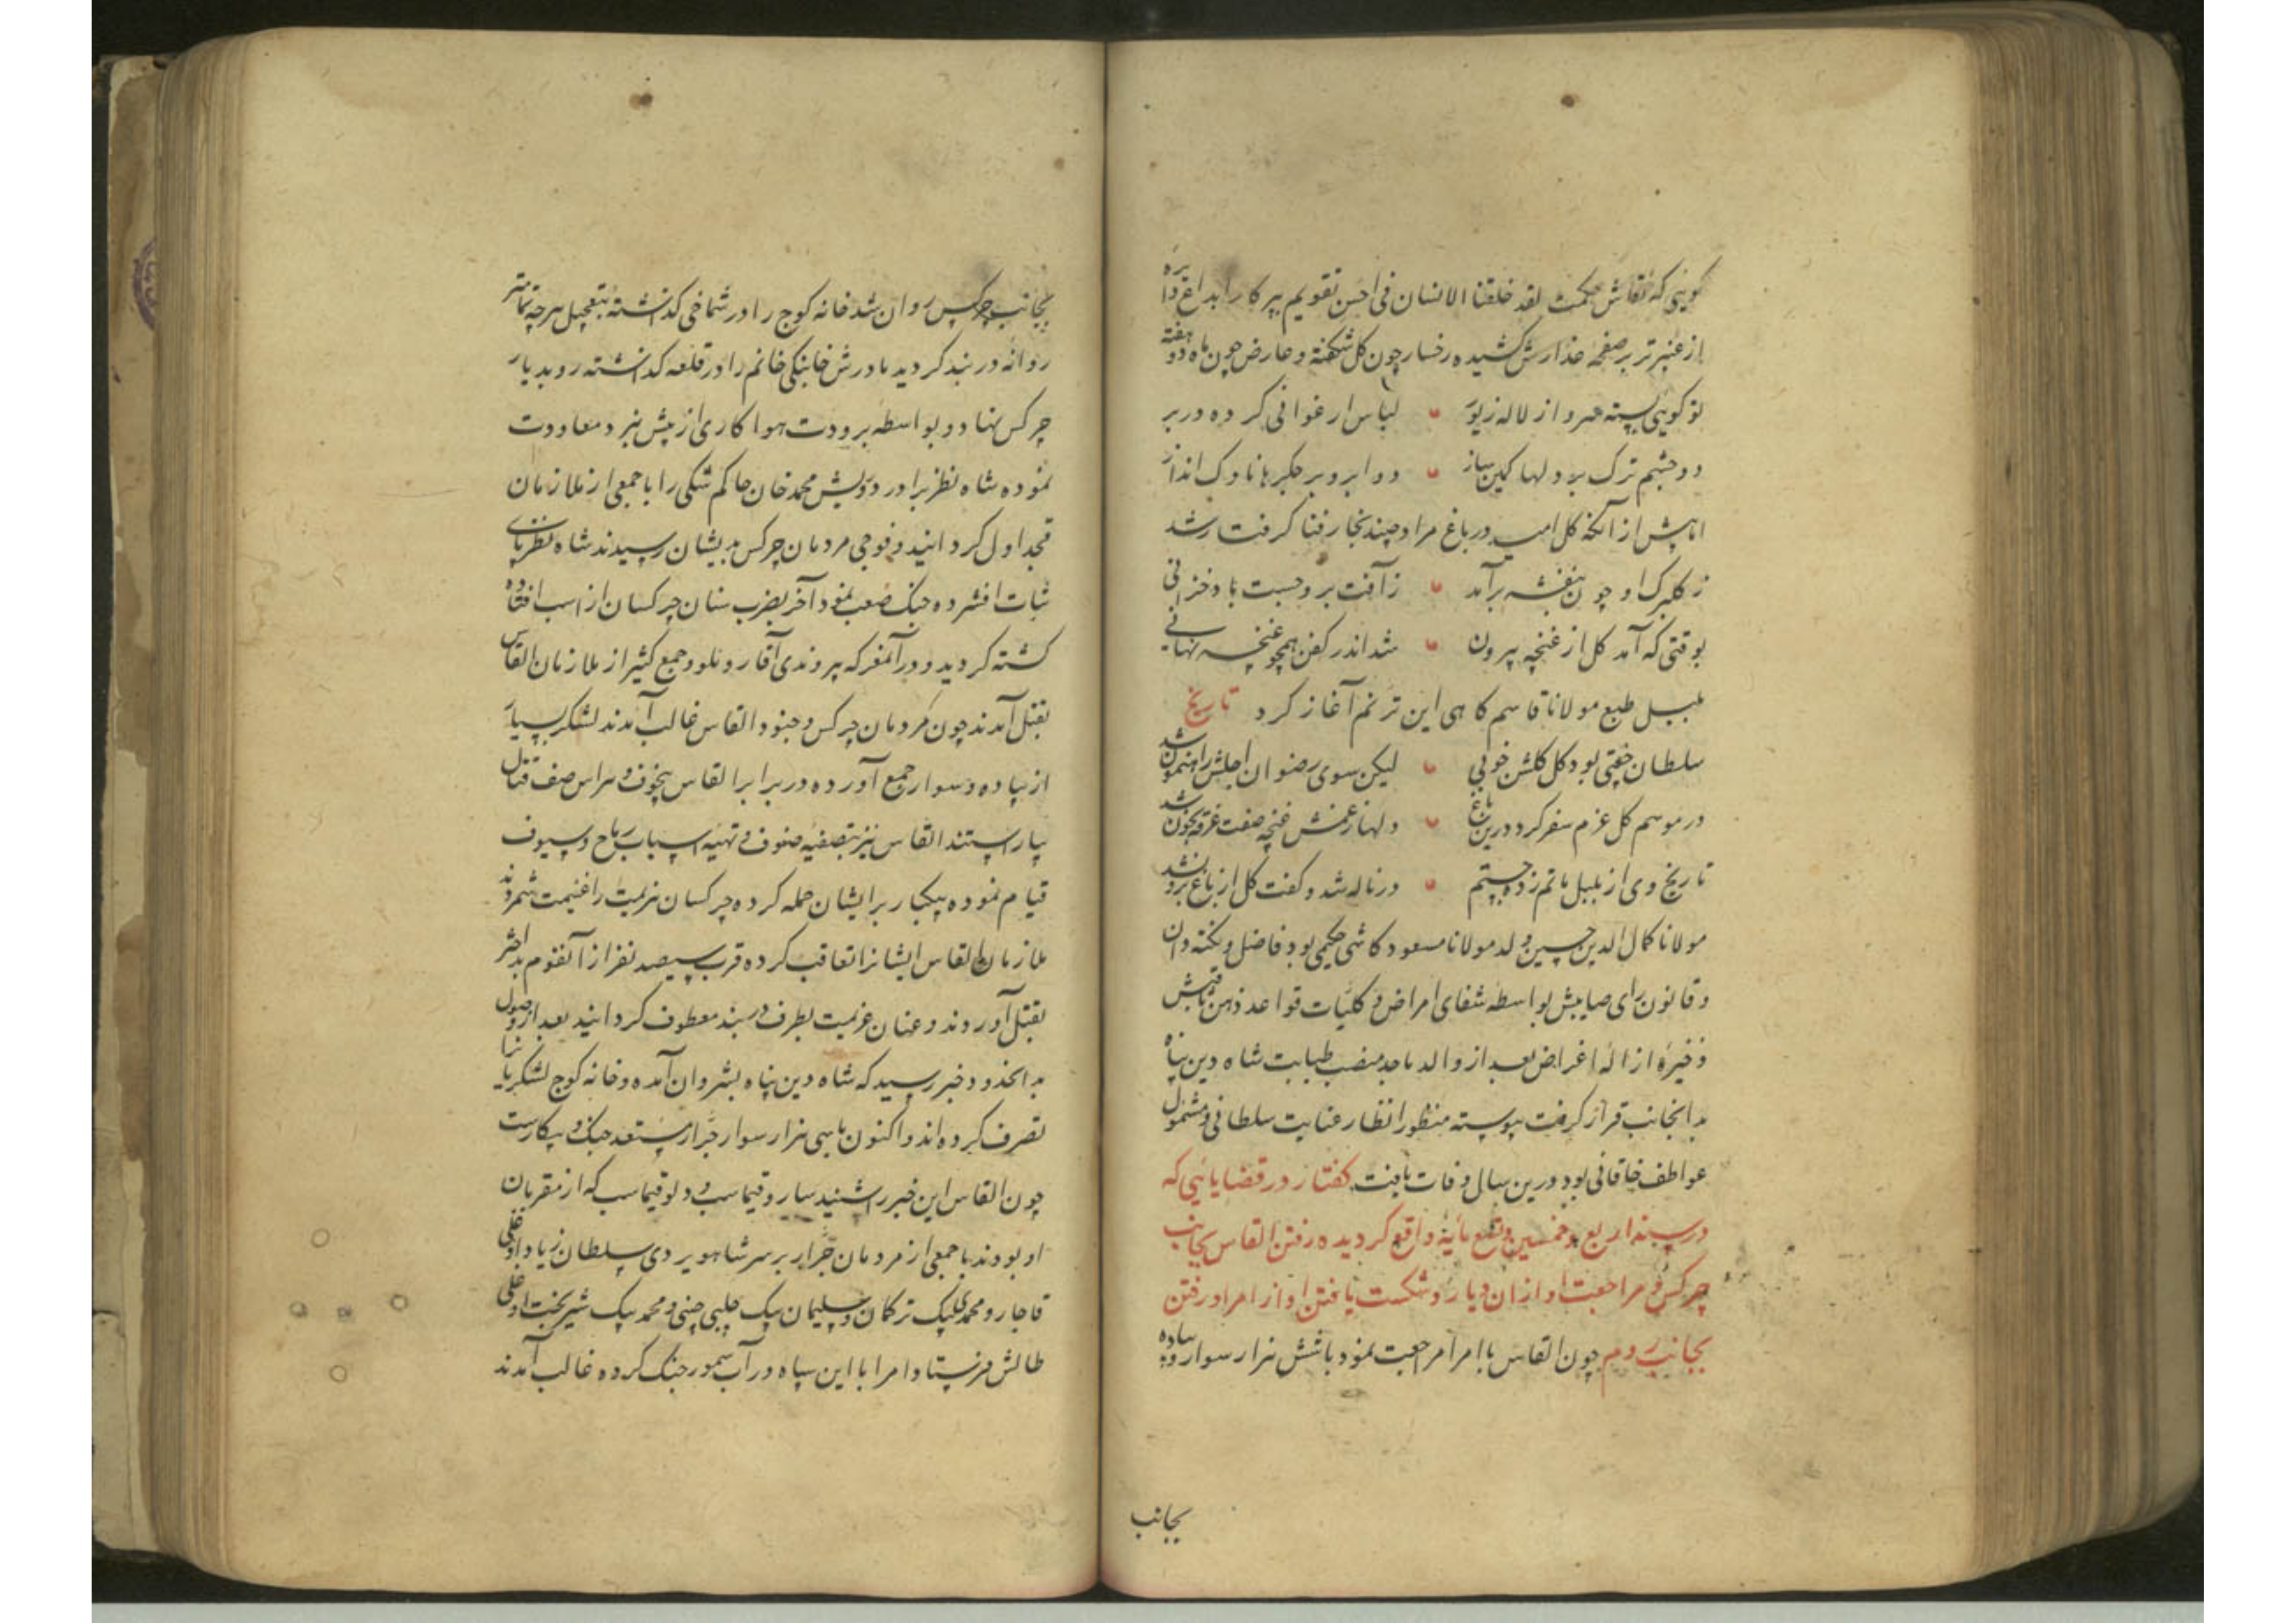 گویی که نقاش حکمت لقد خلقنا الانسان فی احسن تقویم بپرکار ابداع دایره
از عنبر تر بر صفحه عذارش کشیده رخسار چون گل شکفته و عارض چون ماه دو هفته
تو گویی بسته سرو از لاله زیور لباس ارغوانی کرده در بر
دو چشم ترک بر دلها کمین ساز دو ابرو بر جگرها ناوک انداز
اما پیش از آنکه گل امید در باغ مراد چیند بخار فنا گرفتار شد
ز گلبرگ او چون بنفشه برآمد ز آفت برو جست باد خزانی
بوقتی که آمد گل از غنچه بیرون شد اندر کفن همچو غنچه نهانی
بلبل طبع مولانا قاسم کاهی این ترنم آغاز کرد تاریخ
سلطان جغتی بود گل گلشن خوبی لیکن سوی رضوان اجلش راهنمون شد
در موسم گل عزم سفر کرد درین باغ دلها ز غمش غنچه صفت غرقه بخون شد
تاریخ وی از بلبل ماتم زده جستم در ناله شد و گفت گل از باغ برون شد
مولانا کمال الدین حسین ولد مولانا مسعود کاشی حکیمی بود فاضل و نکته دان
و قانون رای صایبش بواسطه شفای امراض و کلیات قواعد ذهن ثاقبش
ذخیره ازاله اغراض بعد از والد ماجد منصب طبابت شاه دین پناه
بدانجانب قرار گرفت پیوسته منظور انظار عنایت سلطانی و مشمول
عواطف خاقانی بود درین سال وفات یافت گفتار در قضایائیی که
در سنه اربع و خمسین و تسع مایة واقع گردیده رفتن القاس بجانب
چرکس و مراجعت او از ان دیار و شکست یافتن او از امرا و رفتن
بجانب روم چون القاس با امرا مراجعت نمود با شش هزار سوار و پیاده
بجانب
بجانب چرکس روان شد خانه کوچ را در شماخی گذاشته بتعجیل هر چه تمامتر
روانه دربند گردید مادرش خانبکی خانم را در قلعه گذاشته رو بدیار
چرکس نهاد و بواسطه برودت هوا کاری از پیش نبرد معاودت
نموده شاه نظر برادر درویش محمد خان حاکم شکی را با جمعی از ملازمان
قجداول گردانید و فوجی مردمان چرکس بدیشان رسیدند شاه نظر پای
ثبات افشرده جنگ صعب نمود آخر بضرب سنان چرکسان از اسب افتاده
کشته گردید و در آن معرکه پروندی آقا روملو و جمع کثیر از ملازمان القاس
بقتل آمدند چون مردمان چرکس و جنود القاس غالب آمدند لشکر بسیار
از پیاده و سوار جمع آورده در برابر القاس بیخوف و هراس صف قتال
بیاراستند القاس نیز بتصفیه صفوف و تهیه اسباب رماح و سیوف
قیام نموده بیکبار بر ایشان حمله کرده چرکسان هزیمت را غنیمت شمردند
ملازمان القاس ایشانرا تعاقب کرده قرب سیصد نفر از آن قوم بداختر
بقتل آوردند و عنان عزیمت بطرف دربند معطوف گردانید بعد از وصول
بدانحدود خبر رسید که شاه دین پناه بشروان آمده و خانه کوچ لشکریانرا
تصرف کرده اند و اکنون با سی هزار سوار جرار مستعد جنگ و پیکارست
چون القاس این خبر را شنید ساروقیماس و دلوقیماس که از مقربان
او بودند با جمعی از مردمان جرار بر سر شاهویردی سلطان زیاداوغلی
قاجار و محمدی بیک ترکمان و سلیمان بیک چلبی چنی و محمد بیک شیربخت اوغلی
طالش فرستاد امرا با این سپاه در آب سمور جنگ کرده غالب آمدند